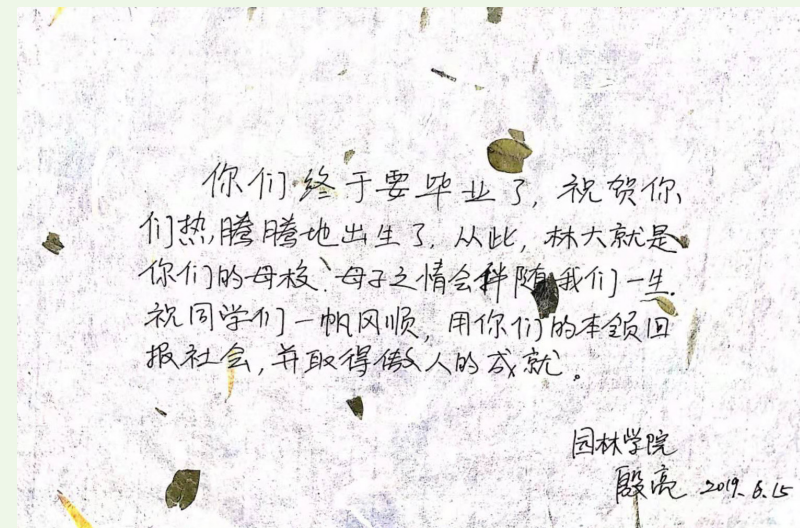 你们终于要毕业了，祝贺你
们热腾腾地出生了，从此，林大就是
你们的母校、母子之情会伴随我们一生.
祝同学们一帆风顺，用你们的本领回
报社会，并取得傲人的成就。
园林学院
殷亮 2019.6.15